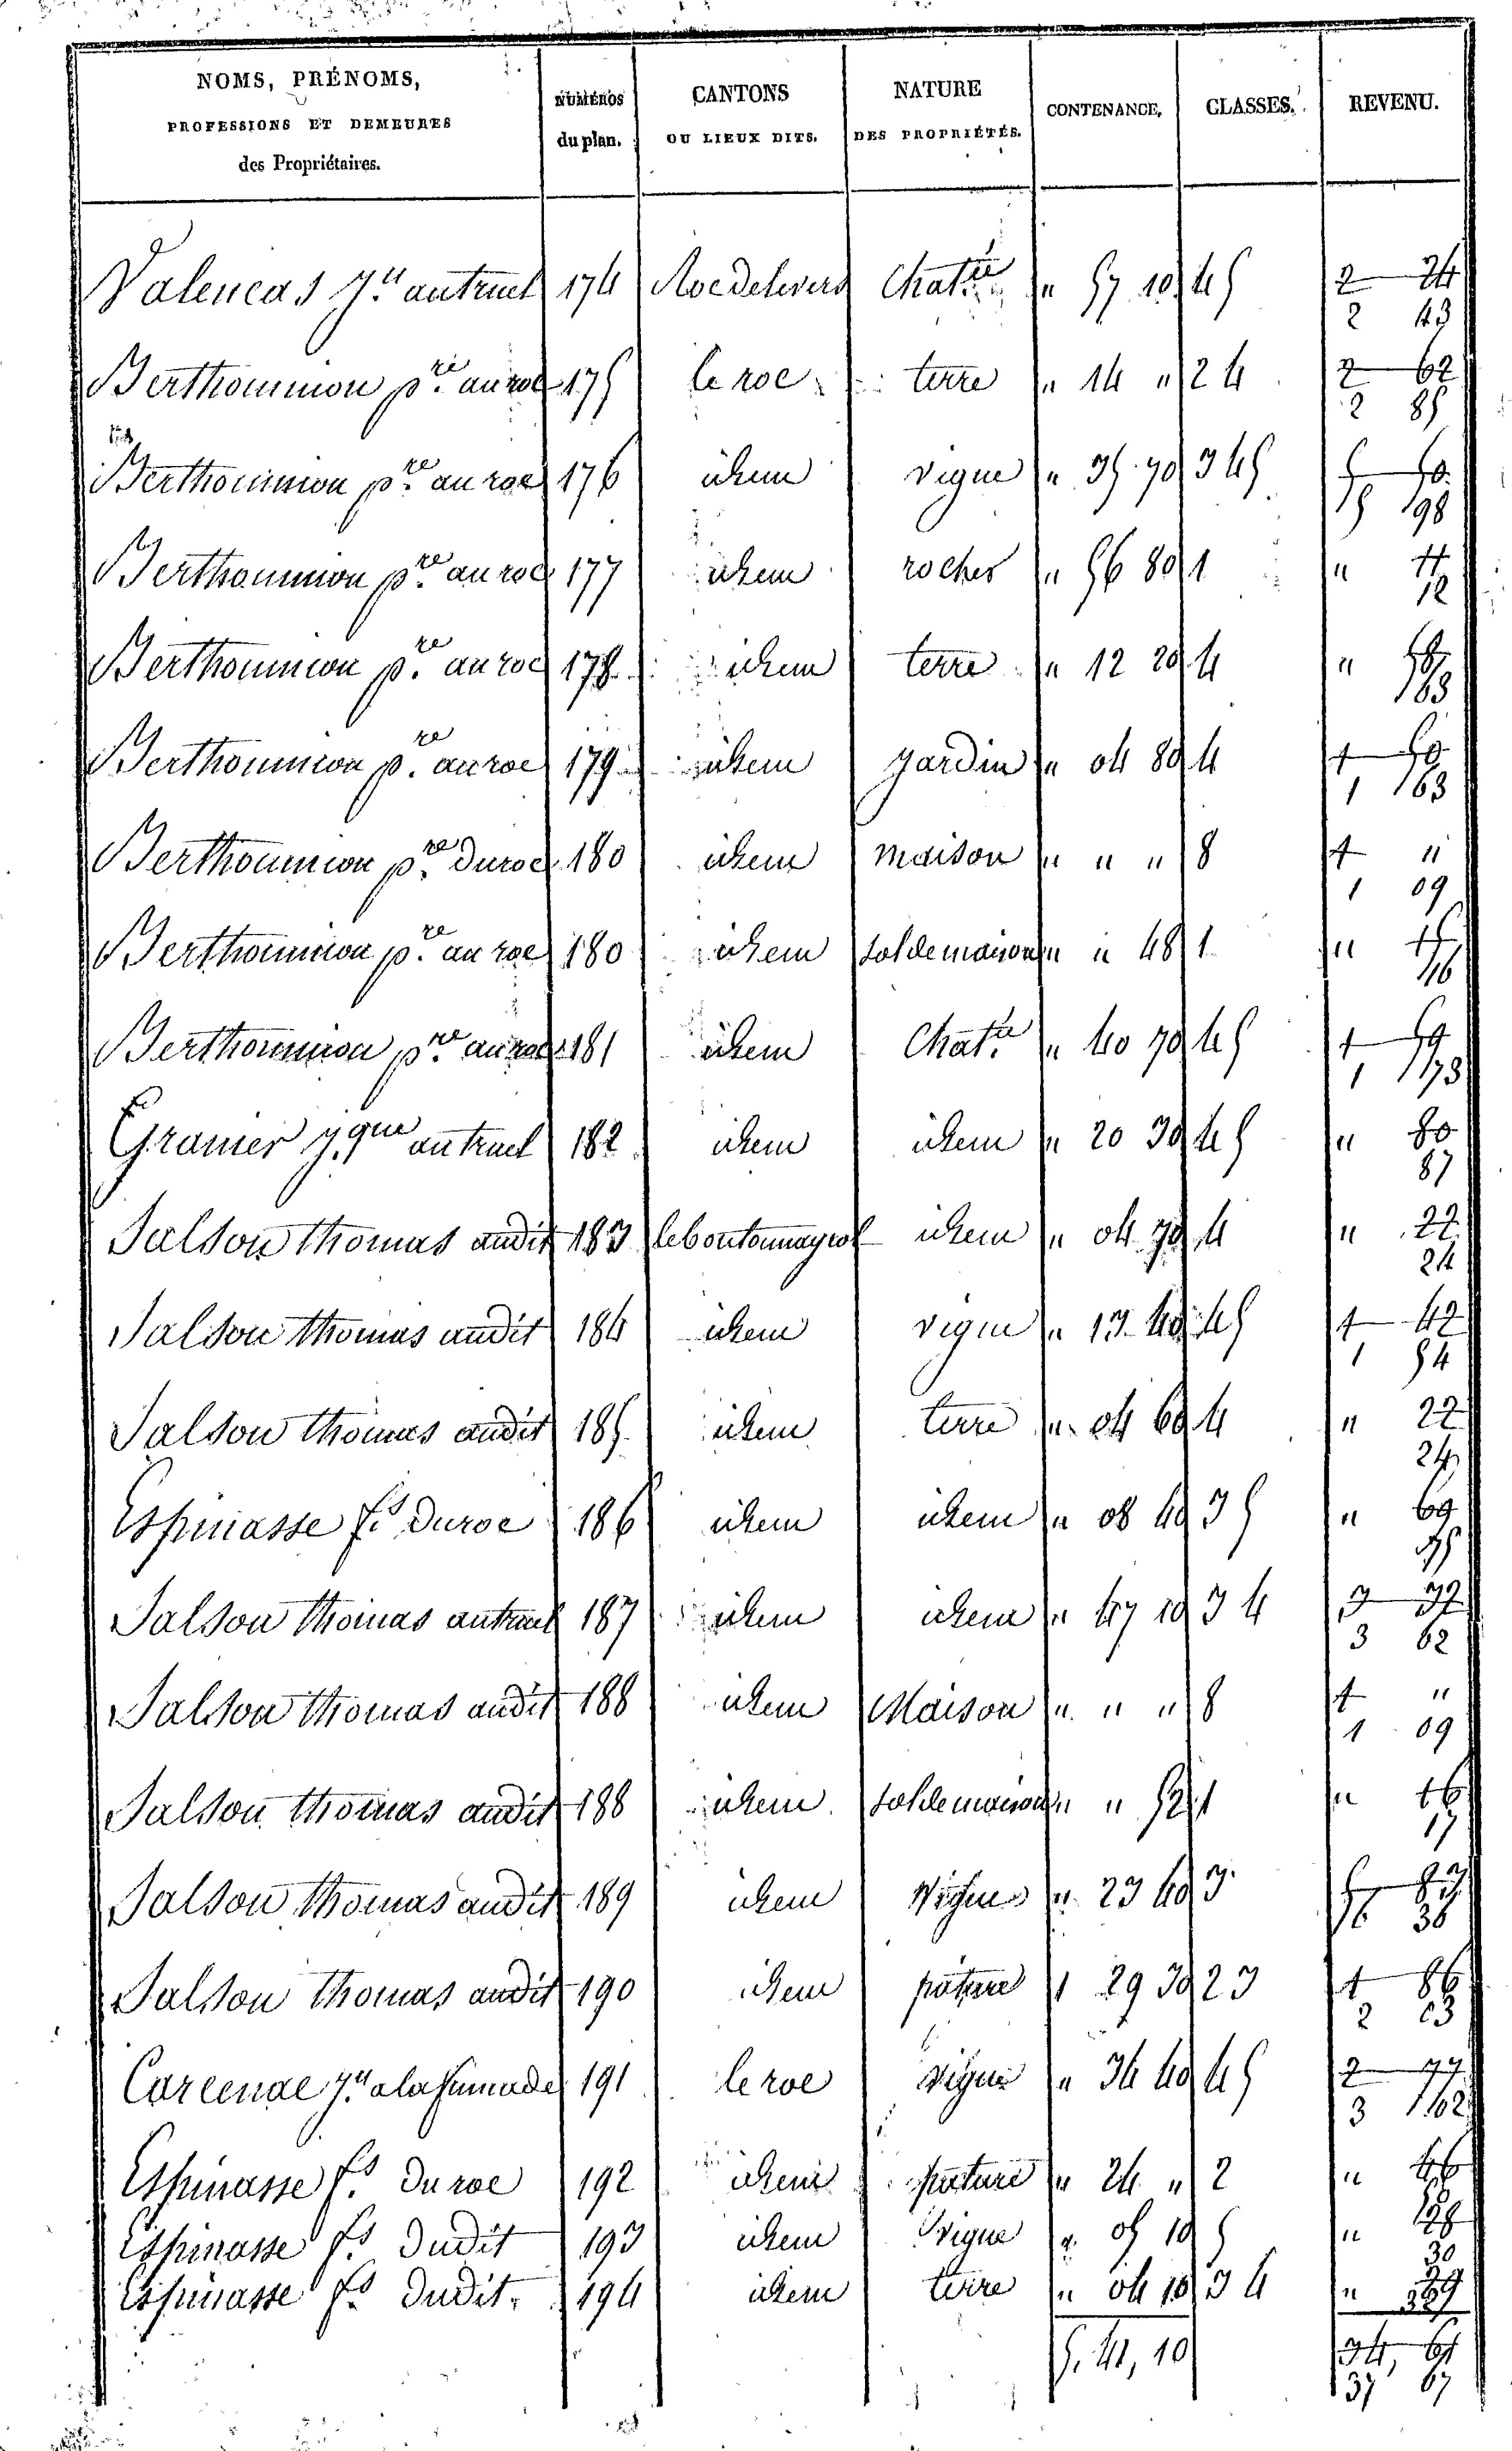 NOMS, PRÉNOMS, PROFESSIONS ET DEMEURES des Propriétaires. NUMÉROS du plan. CANTONS OU LIEUX DITS. NATURE DES PROPRIÉTÉS. CONTENANCE, CLASSES. REVENU.
174 Chat.re " 57 10 4 5 2 24
2 43
Berthoumiou p.re au roc 175 le roc terre " 14 " 2 4 2 62
2 85
Berthoumiou p.re au roc 176 idem vigne " 35 70 3 4 5
Berthoumiou p.re au roc 177 idem rocher " 56 80 1 " 11
12
Berthoumiou p.re au roc 178 idem terre " 12 20 4 " 58
63
Berthoumiou p.re au roc 179 idem jardin " 04 80 4 1 50
1 63
Berthoumiou p.re du roc 180 idem maison " " " 8 1 "
1 09
Berthoumiou p.re au roc 180 idem sol de maison " " 48 1 " 15
16
Berthoumiou p.re au roc 181 idem Chat.re " 40 70 4 5 1 59
1 73
182 idem idem " 20 30 4 5 " 80
87
Salson thomas audit 183 idem " 04 70 4 " 22
24
Salson thomas audit 184 idem vigne " 13 40 4 5 1 42
1 54
Salson thomas audit 185 idem terre " 04 60 4 " 22
24
Espinasse f.s du roc 186 idem idem " 08 40 3 5 " 69
75
Salson thomas 187 idem idem " 47 10 3 4 3 32
3 62
Salson thomas audit 188 idem Maison " " " 8 1 "
1 09
Salson thomas audit 188 idem sol de maison " " 52 1 " 16
17
Salson thomas audit 189 idem Vigne " 23 40 3
Salson thomas audit 190 idem pature 1 29 30 2 3 1 86
2 03
191 le roc Vigne " 34 40 4 5 2 77
3 02
Espinasse f.s du roc 192 idem pature " 24 " 2
Espinasse f.s dudit 193 idem Vigne " 05 10 5
30
Espinasse f.s dudit 194 idem terre " 04 10 3 4
5. 41, 10 34, 61
37 67